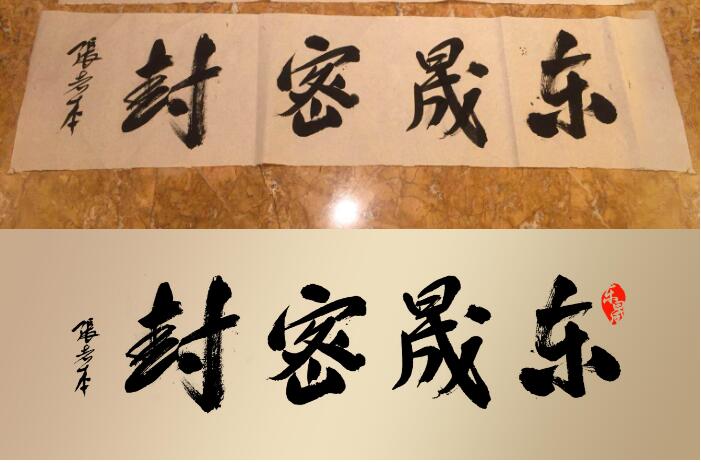 东晟密封
張 本
东晟密封
东晟
張 本